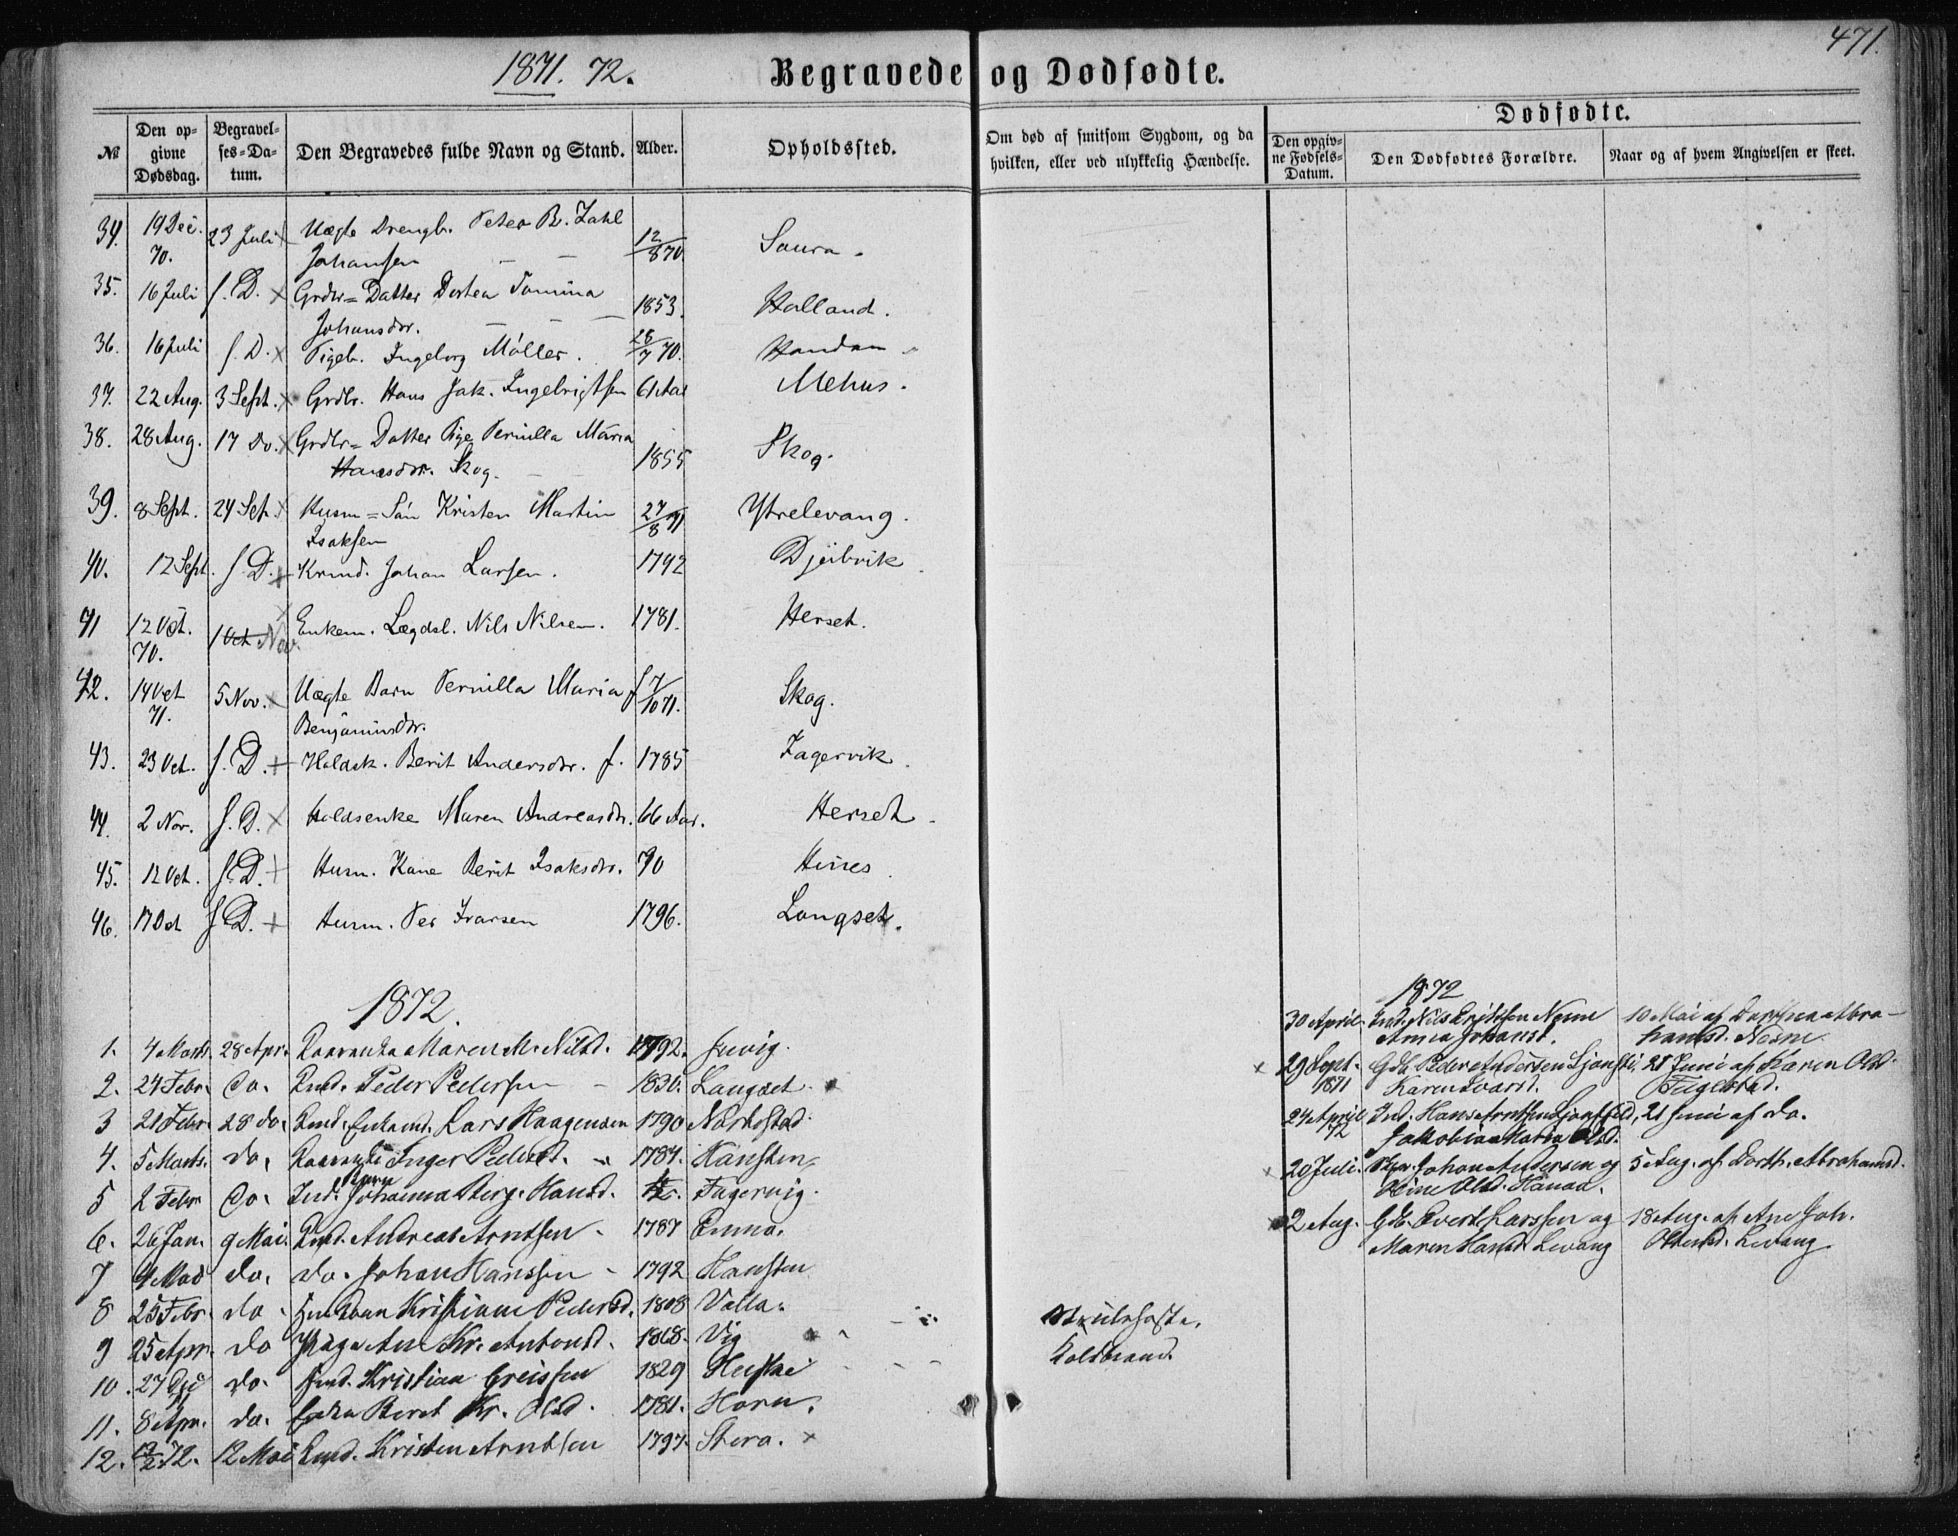 471.
1871. 72.
Begravede og Dødfødte.
Dødfødte.
№
Den opgivne Dødsdag.
Begravelses-Datum.
Den Begravedes fulde Navn og Stand.
Alder.
Opholdssted.
Om død af smitsom Sygdom, og da hvilken, eller ved ulykkelig Hændelse.
Den opgivne Fødsels-Datum.
Den Dødfødtes Forældre.
Naar og af hvem Angivelsen er skeet.
34. 19 Dec. 70. 23 Juli Uægte Drengb. Peter B. Zahl Johansen 12/8 70. Saura.
35. 16 Juli s. D. Grdbr= Datter Dortea Tomina Johansdr. 1853. Halland.
36. 16 Juli s. D. Pigeb. Ingeborg Möller. 28/7 70. Handan
37. 22 Aug. 3 Sept. Grdbr. Hans Jak. Ingebrigtsen 61 Aar Mehus.
38. 28 Aug. 17 Do. Grdbr= Datter Pige Pernilla Maria Hansdr. Skog. 1855 Skog.
39. 8 Sept. 24 Sept. Husm= Sön Kristen Martin Isaksen 27/8 71 Ytrelevang.
40. 12 Sept. s. D. Krmd. Johan Larsen. 1792 Djeibvik
41 12 Oct. 70. 1 Oct Nov. Enkem. Lægdsl. Nils Nilsen. 1781. Herset.
42. 14 Oct 71. 5 Nov. Uægte Barn Pernilla Maria Benjaminsdr. f 7/10 71. Skog.
43. 23 Oct. s. D. Holdsk. Berit Andersdr. f. 1785 Fagervik
44. 2 Nov. s. D. Holdsenke Maren Andreasdr. 66 Aar. Herset
45. 12 Oct. s. D. Husm. Kone Berit Isaksdr. 90 Hines
46. 17 Oct s. D. Husm. Per Ivarsen 1796. Langset.
1872.
1. 4 Marts 28 Apr. Maren M. Nilsd. 1792.
2. 24 Febr. do. Peder Pedersen 1830. Langset
3 21 Febr. 28 do. Enkemd. Lars Haagensen 1790
4. 5 Marts. do. Inger Pedersd. 1784. Hansten
5 2 Febr do. Ind. Barn Johanna Berg. Hansd. Fagervig.
6. 26 Jan. 9 Mai. Andreas Arntsen 1787 Emmo.
7 do. do. Johan Hanssen 1792 Hansten
8 25 Febr. do Kristiane Pedersd. 1808 Valla.
9 25 Apr. do Pige An Kr. Antonsd. 1868. Vig
10. 27 do. Kristian Greissen 1829
Koldbrand.
11. 8 Apr. do. Enke Beret Kr. Olsd. 1781. Horn.
12. 12/2 72. 12 Mai Kristen Arntsen 1797. Stera.
1872
30 April. Ind. Nils Nesne Anna Johansd. 10 Mai af Dorthea Abrahamsd. Nesne
29 Sept. 1871 Gdb. Peder Andersen Karen Ivarsd. 21 Juni af Karen Olsd.
24 April 72 Ind. Hans Arntsen Jakobina Maria Olsd. 21 Juni af do.
20 Juli. Johan Andersen og Oline Olsd. 5 Aug. af Dorth. Abrahamsd.
2 Aug. Gdb. Evert Larssen og Maren Hansd. Levang 18 Aug. af Ane Joh. Levang